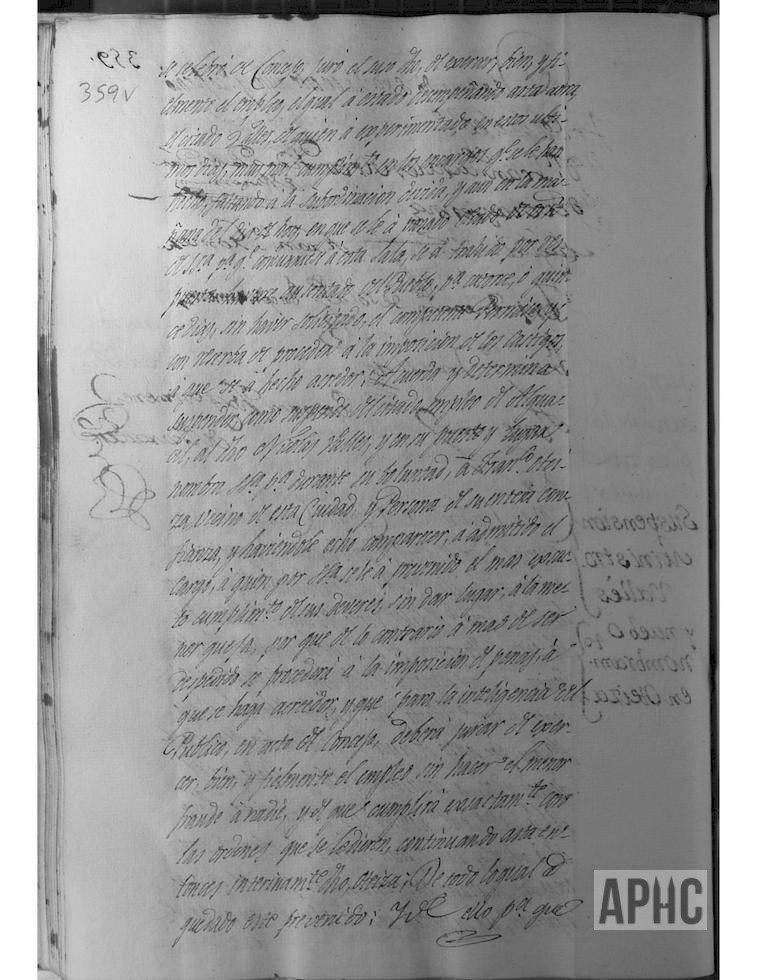 359.
359v
se celebró de Concejo, juró el suso dho, de exercer, bien y fi-
elmente el empleo, el qual á estado desempeñando asta aora
el citado Valles, de quien á experimentado en estos ulti-
mos dias, mui mal cumplim.to en los encargos q.e se le han
hecho, faltando á la subordinacion devida, y aun en la ma-
ñana de este dia hoy en que se le á
p.a q.e comunicase á esta Sala, se á
ausentado del Pueblo, p.a catorce, ó quin-
ce dias, sin haver solicitado, el competente permiso, y
con reserba de proceder á la imposicion de los castigos,
á que se á hecho acredor; Acuerda y determina
suspender, como suspende del citado empleo de Algua-
cil, al dho Nicolas Valles, y en su puesto y lugar,
nombra S.S.a p.a durante su boluntad, á Fran.co Otei-
za, vecino de esta Ciudad y Persona de su entera con-
fianza, y haviendole echo comparecer, á admitido el
Cargo, á quien por S.S.a se le á prevenido el mas exsac-
to cumplim.to de sus deveres, sin dar lugar á la me-
nor quexa, por que de lo contrario á mas de ser
despedido se procederá á la imposicion de penas, á
que se haga acrehedor, y que para la inteligencia del
Publico, en acto de Concejo, deberá jurar de exer-
cer, bien, y fielmente el empleo, sin hacer el menor
fraude á nadie, y de que cumplirá exsactam.te con
las ordenes que se le dieren, continuando asta en-
tonces interinam.te dho, Oteiza; De todo lo qual á
quedado este prevenido; Y de ello p.a que
Suspension
ministro
Valles
y nuebo
nombram.to
en Oteiza
APHC